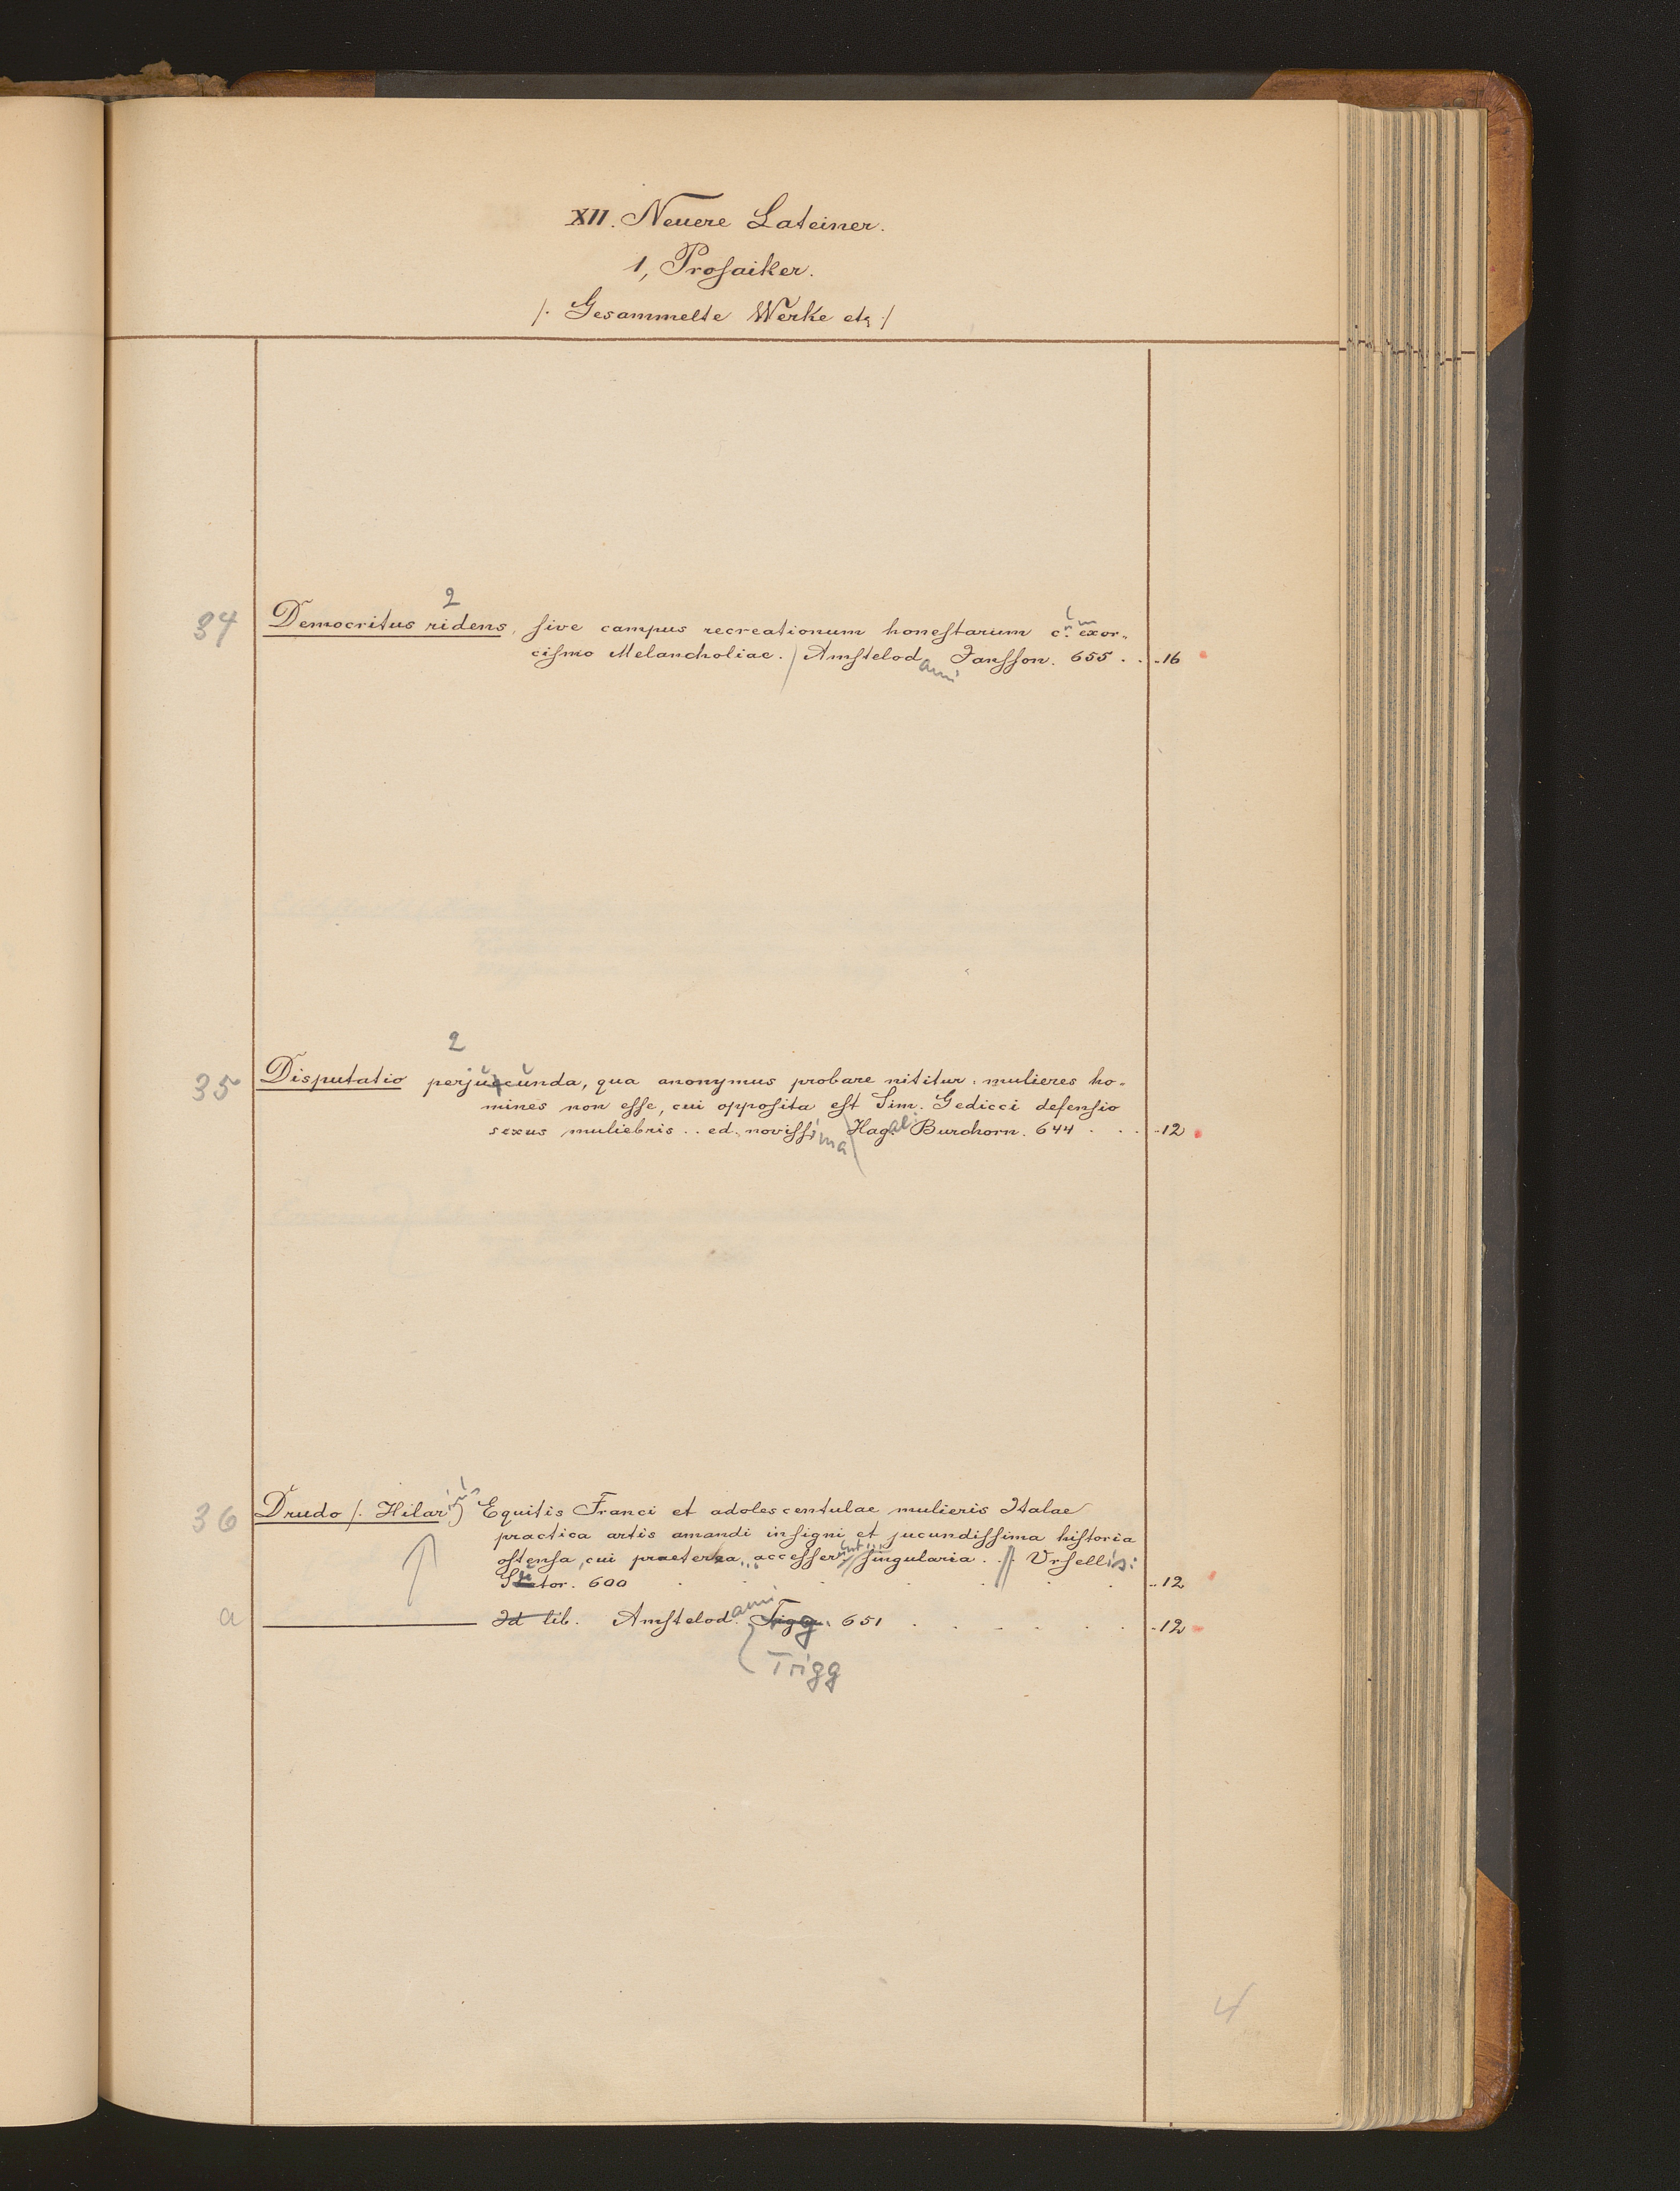 XII. Neuere Lateiner.
1, Prosaiker.
/. Gesammelte Werke etc /
2
34 Democritus ridens, sive campus recreationum honestarum c. um exor-
cismo Melancholiae. / Amstelodami Jansson. 655 . . -16
2
35 Disputatio perjucunda, qua anonymus probare nititur: mulieres ho-
mines non esse, cui opposita est Sim. Gedicci defensio
sexus muliebris .. ed. novissima Hag. ae: Burchorn. 644 . . . -12
36 Drudo /. Hilarius) Equitis Franci et adolescentulae mulieris Italae
practica artis amandi insigni et jucundissima historia
ostensa, cui praeterea, accesserunt singularia . . // Ursellis:
Sutor. 600 . . . . . . -12
a Id lib. Amstelodami Tigg. 651 . . . . . . -12
Trigg
4